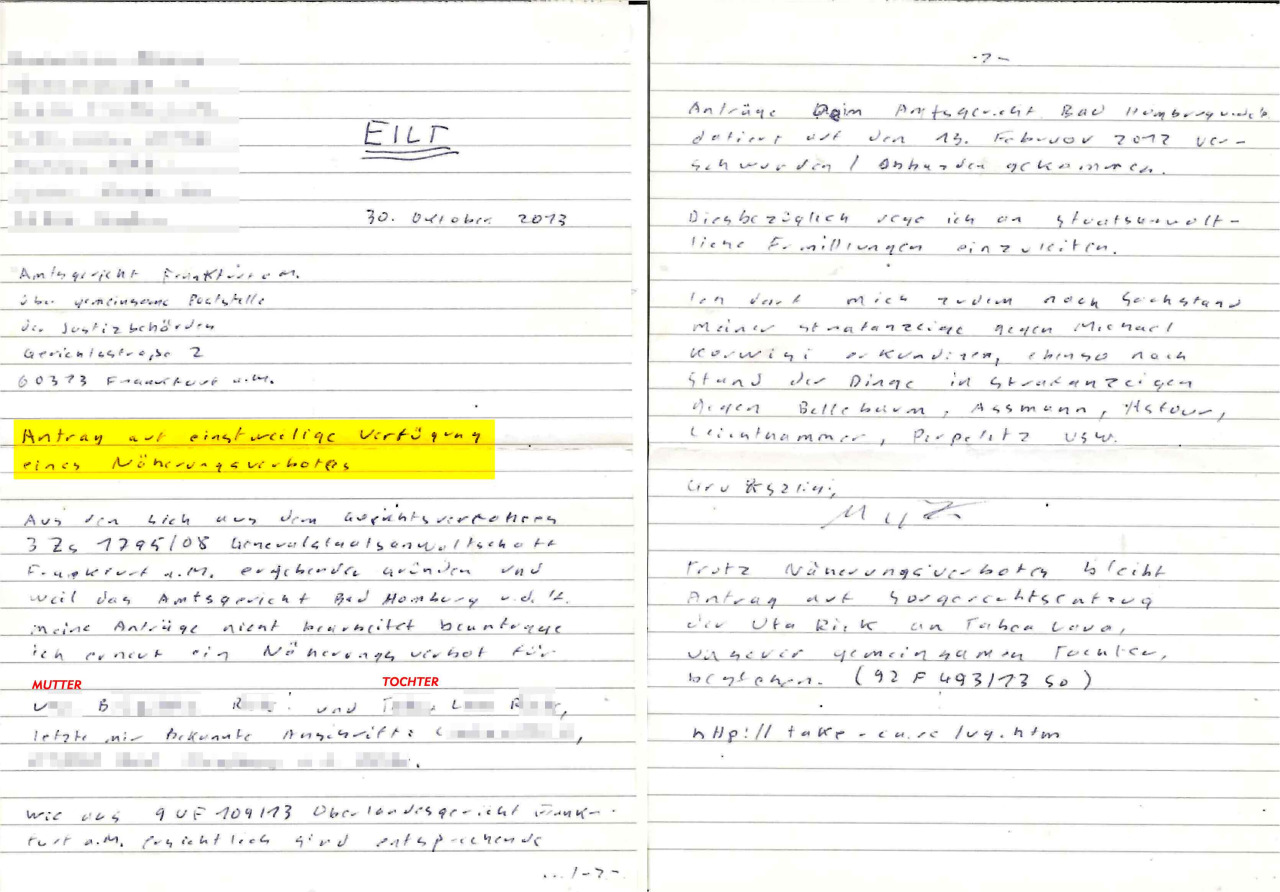 EILT
30. Oktober 2013
Amtsgericht Frankfurt a.M.
über gemeinsame Poststelle
der Justizbehörden
Gerichtsstraße 2
60313 Frankfurt a.M.
Antrag auf einstweilige Verfügung
eines Näherungsverbotes
Aus den sich aus dem
3 Zs 1795/08 Generalstaatsanwaltschaft
Frankfurt a.M. ergebende Gründen und
weil das Amtsgericht Bad Homburg v.d.H.
meine Anträge nicht bearbeitet beantrage
ich erneut ein Näherungsverbot für
MUTTER TOCHTER
und
letzte mir bekannte Anschrift:
Wie aus 9 UF 109/13 Oberlandesgericht Frank-
furt a.M. ersichtlich sind entsprechende
.../-2-
-2-
Anträge beim Amtsgericht Bad Homburg v.d.H.
datiert auf den 13. Februar 2012 ver-
schwunden / abhanden gekommen.
Diesbezüglich rege ich an staatsanwalt-
liche Ermittlungen einzuleiten.
Ich darf mich zudem nach Sachstand
meiner Strafanzeige gegen Michael
Korwisi erkundigen, ebenso nach
Stand der Dinge in Strafanzeigen
gegen Bellebaum, Assmann, Hefour,
Leichthammer, Perpelitz usw.
Trotz Näherungsverbotes bleibt
Antrag auf Sorgerechtsentzug
der Uta Rick an Tabea Lara,
unserer gemeinsamen Tochter,
bestehen. (92 F 493/13 SO)